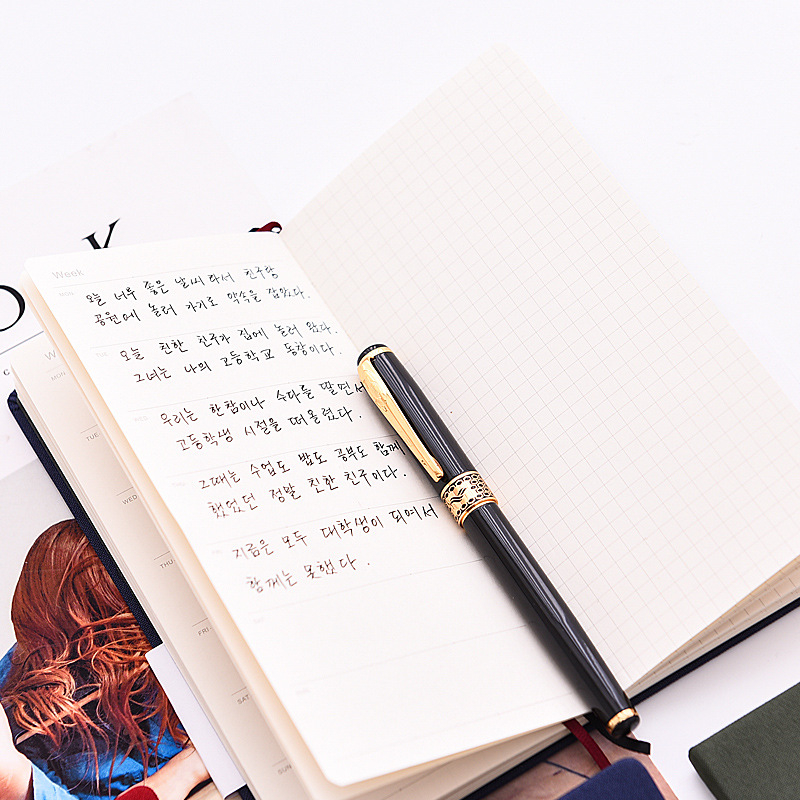 K
O
Week
MON
오늘 너무 좋은 날씨 따라서 친구랑
공원에 놀러 가기로 약속을 잡았다.
오늘 친한 친구가 집에 놀러 왔다.
그녀는 나의 고등학교 동창이다.
우리는 한참이나 수다를 떨면서
고등학생 시절을 떠올렸다.
그때는 수업도 밥도 공부도 함께
했었던 정말 친한 친구이다.
지금은 모두 대학생이 되여서
함께는 못했다.
SAT
W
MON
TUE
WED
THU
FRI
SAT
SUN